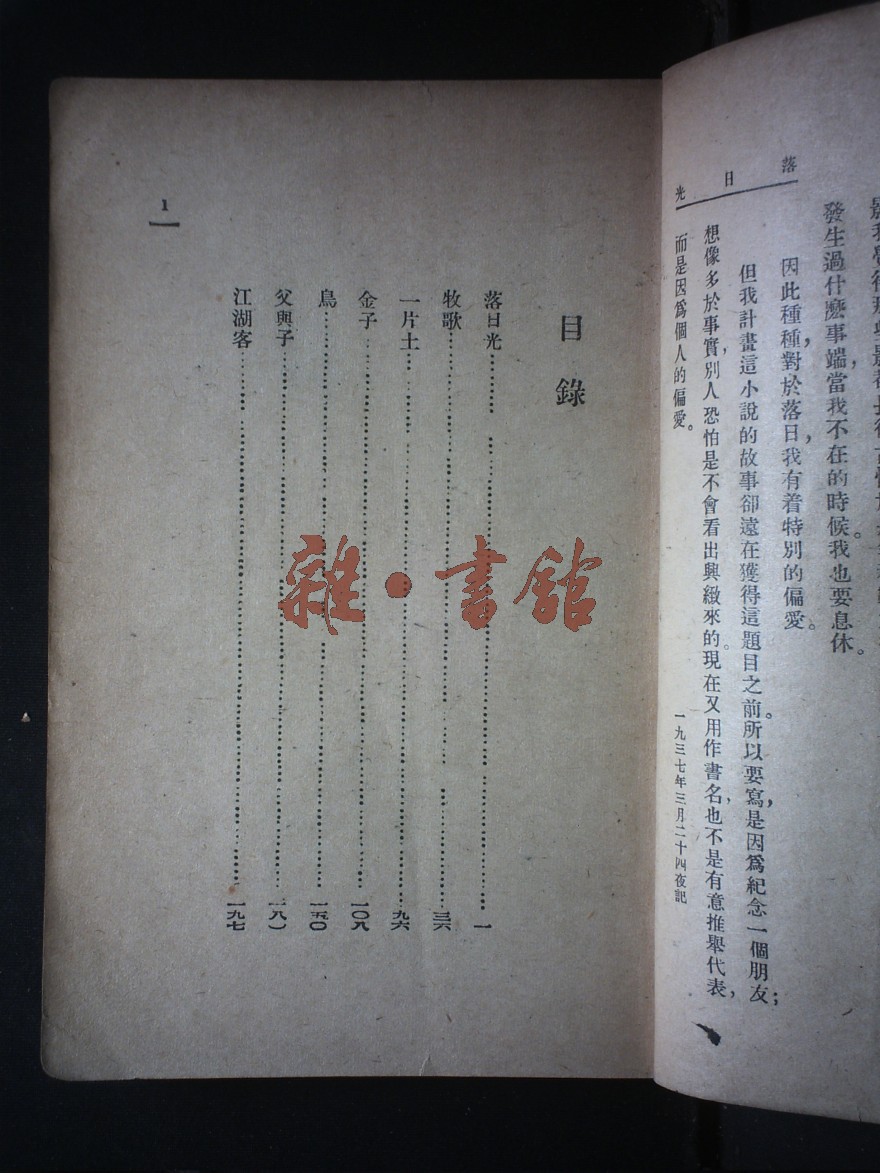 發生過什麼事端，當我不在的時候。我也要息休。
因此種種，對於落日我有着特別的偏愛。
但我計畫這小說的故事卻遠在獲得這題目之前。所以要寫，是因爲紀念一個朋友；
想像多於事實，別人恐怕是不會看出興緻來的。現在又用作書名，也不是有意推舉代表，
而是因爲個人的偏愛。
一九三七年三月二十四夜記
落日光
目錄
落日光 一
牧歌 三六
一片土 九六
金子 一〇八
鳥 一五〇
父與子 一八一
江湖客 一九七
1
雜·書館